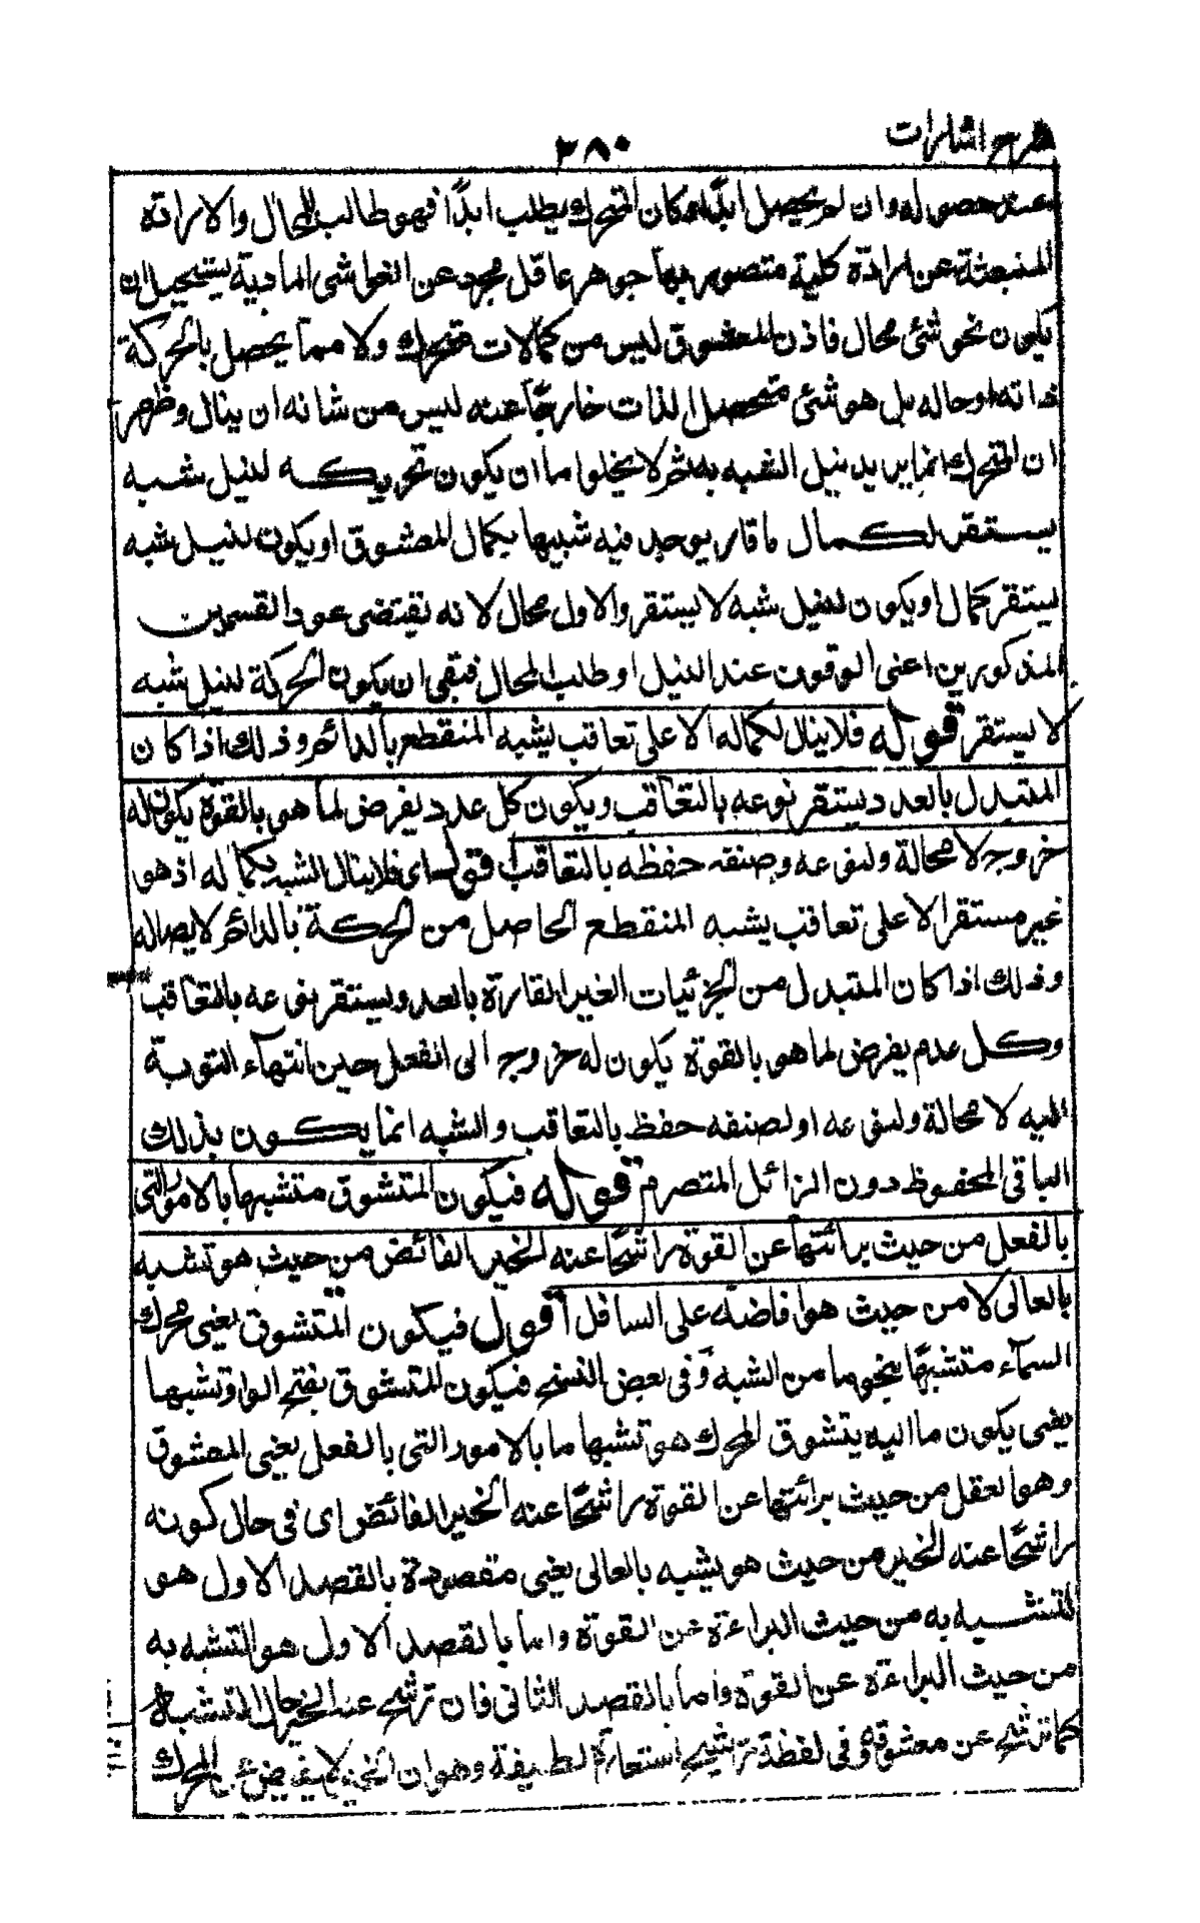 شرح اشارات
٣٨٠
عند حصوله وان لم يحصل ابدًا وكان المتحرك يطلب ابدًا فهو طالب للمحال والارادة
المنبعثة عن ارادة كلية متصور بها جوهر عاقل مجرد عن الغواشى المادية يستحيل ان
يكون نحو شئ محال فاذن المعشوق ليس من كمالات متحرك ولا مما يحصل بالحركة
ذاته او حاله بل هو شئ متحصل الذات خارجًا عنه ليس من شانه ان ينال وظهر
ان المتحرك انما يريد نيل الشبه به ثم لا يخلوا ما ان يكون تحريكه لنيل شبه
يستقر لكمال ما قار يوجد فيه شبيها بكمال المعشوق او يكون لنيل شبه
يستقر كمال او يكون لنيل شبه لا يستقر والاول محال لانه يقتضى عود القسمين
المذكورين اعنى الوقوف عند النيل او طلب المحال فبقى ان يكون الحركة لنيل شبه
لا يستقر قوله فلا ينال لكماله الا على تعاقب يشبه المنقطع بالدائم وذلك اذا كان
المتبدل بالعدد يستقر نوعه بالتعاقب ويكون كل عدد يفرض لما هو بالقوة يكون له
خروج لا محالة ولنوعه وصنفه حفظه بالتعاقب فقوله اى فلا ينال الشبه بكماله اذ هو
غير مستقر الا على تعاقب يشبه المنقطع الحاصل من الحركة بالدائم لاتصاله
وذلك اذا كان المتبدل من الجزئيات الغير القارة بالعدد ويستقر بنوعه بالتعاقب
وكل عدم يفرض لما هو بالقوة يكون له خروج الى الفعل حين انتهاء النوبة
اليه لا محالة ولنوعه او لصنفه حفظ بالتعاقب والشبه انما يكون بذلك
الباقى المحفوظ دون الزائل المتصرم قوله فيكون المتشوق متشبها بالامور التى
بالفعل من حيث برائتها عن القوة راشحًا عنه الخير الفائض من حيث هو تشبه
بالعالى لا من حيث هو افاضة على السافل اقول فيكون المتشوق يعنى محرك
السماء متشبهًا بنحو ما من الشبه وفى بعض النسخ فيكون المتشوق بفتح الواو تشبها
يعنى يكون ما اليه يتشوق المحرك هو تشبها ما بالامور التى بالفعل يعنى المعشوق
وهو العقل من حيث برائتها عن القوة راشحًا عنه الخير الفائض اى فى حال كونه
راشحًا عنه الخير من حيث هو يشبه بالعالى يعنى مقصودة بالقصد الاول هو
التشبيه به من حيث البراءة عن القوة واما بالقصد الاول هو التشبه به
من حيث البراءة عن القوة واما بالقصد الثانى فان ترشح عنه الخير حال التشبه
كما ترشح عن معشوقه وفى لفظة ترشيح استعارة لطيفة وهو ان الخير لا يفيض عن المحرك